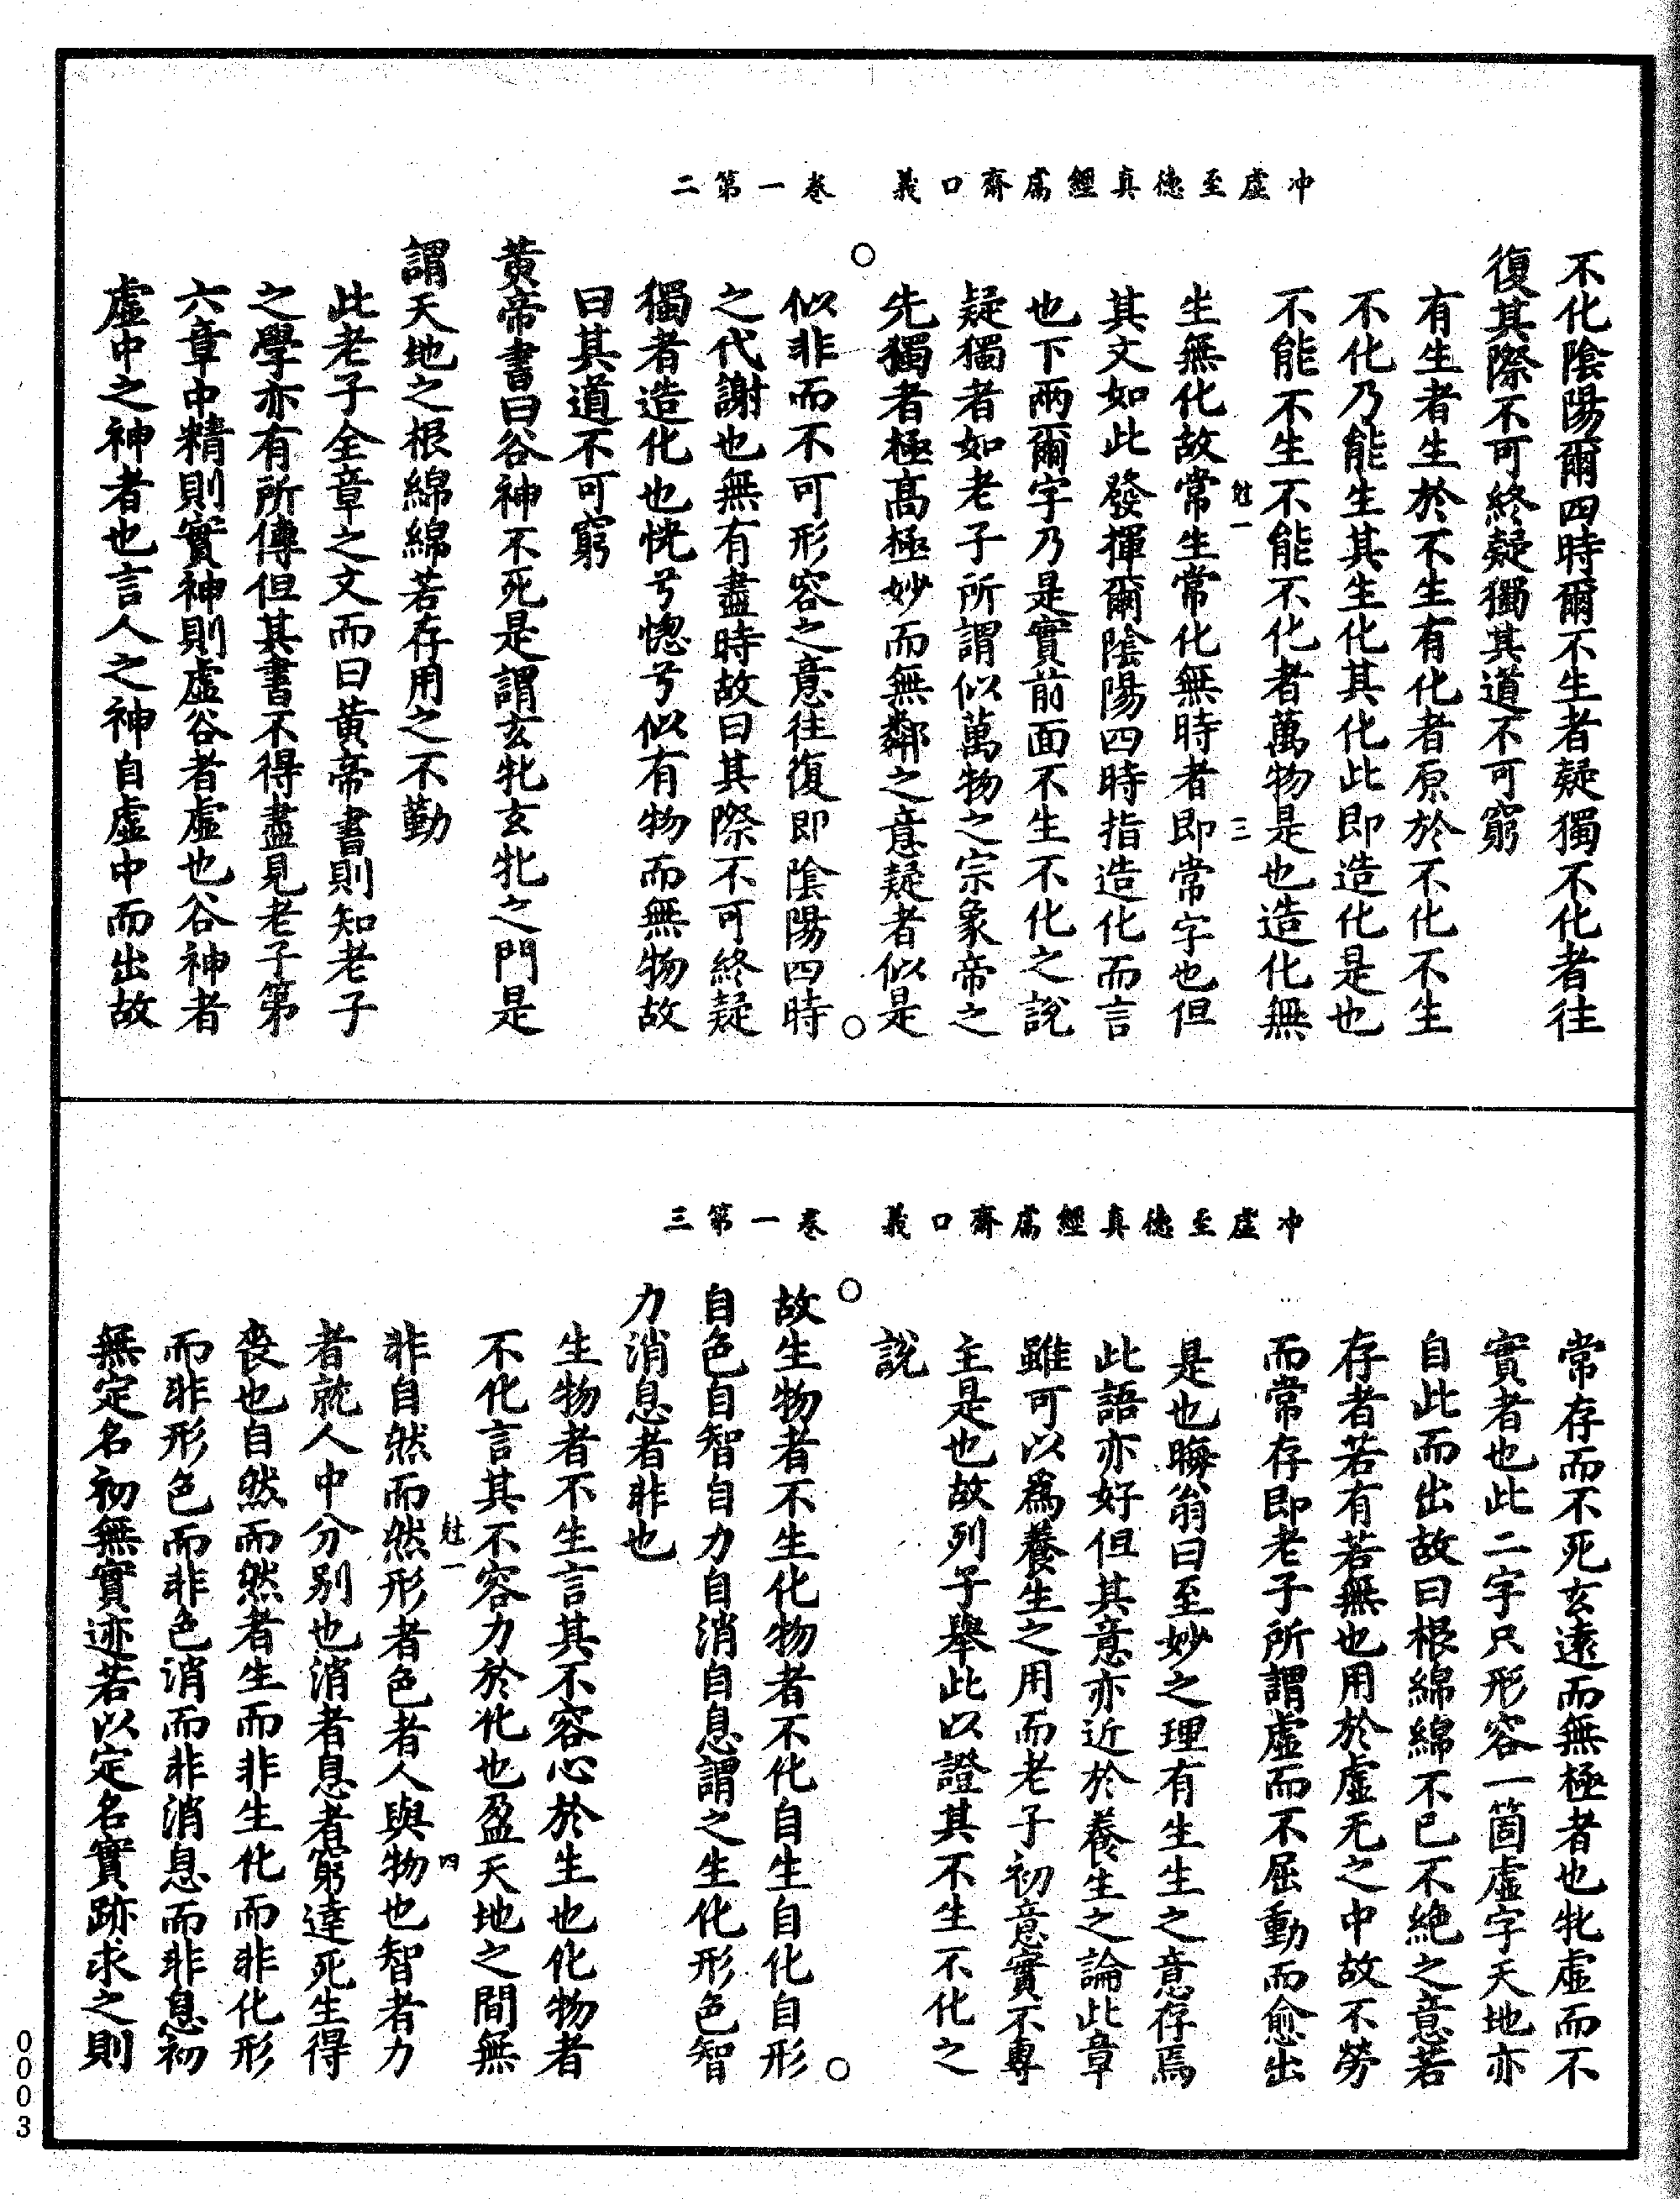 冲虛至德真經鬳齋口義　卷一第二
不化陰陽爾四時爾不生者疑獨不化者往
復其際不可終疑獨其道不可窮
有生者生於不生有化者原於不化不生
不化乃能生其生化其化此即造化是也
不能不生不能不化者萬物是也造化無
魁一　三
生無化故常生常化無時者即常字也但
其文如此發揮爾陰陽四時指造化而言
也下兩爾字乃是實前面不生不化之說
疑獨者如老子所謂似萬物之宗象帝之
先獨者極高極妙而無鄰之意疑者似是
○　○
似非而不可形容之意往復即陰陽四時
之代謝也無有盡時故曰其際不可終疑
獨者造化也恍兮惚兮似有物而無物故
曰其道不可窮
黃帝書曰谷神不死是謂玄牝玄牝之門是
謂天地之根綿綿若存用之不勤
此老子全章之文而曰黃帝書則知老子
之學亦有所傳但其書不得盡見老子第
六章中精則實神則虛谷者虛也谷神者
虛中之神者也言人之神自虛中而出故
冲虛至德真經鬳齋口義　卷一第三
常存而不死玄遠而無極者也牝虛而不
實者也此二字只形容一箇虛字天地亦
自此而出故曰根綿綿不已不絕之意若
存者若有若無也用於虛无之中故不勞
而常存即老子所謂虛而不屈動而愈出
是也晦翁曰至妙之理有生生之意存焉
此語亦好但其意亦近於養生之論此章
雖可以爲養生之用而老子初意實不專
主是也故列子舉此以證其不生不化之
說
○　○
故生物者不生化物者不化自生自化自形
自色自智自力自消自息謂之生化形色智
力消息者非也
生物者不生言其不容心於生也化物者
不化言其不容力於化也盈天地之間無
魁一　四
非自然而然形者色者人與物也智者力
者就人中分別也消者息者窮達死生得
喪也自然而然者生而非生化而非化形
而非形色而非色消而非消息而非息初
無定名初無實迹若以定名實跡求之則
0003